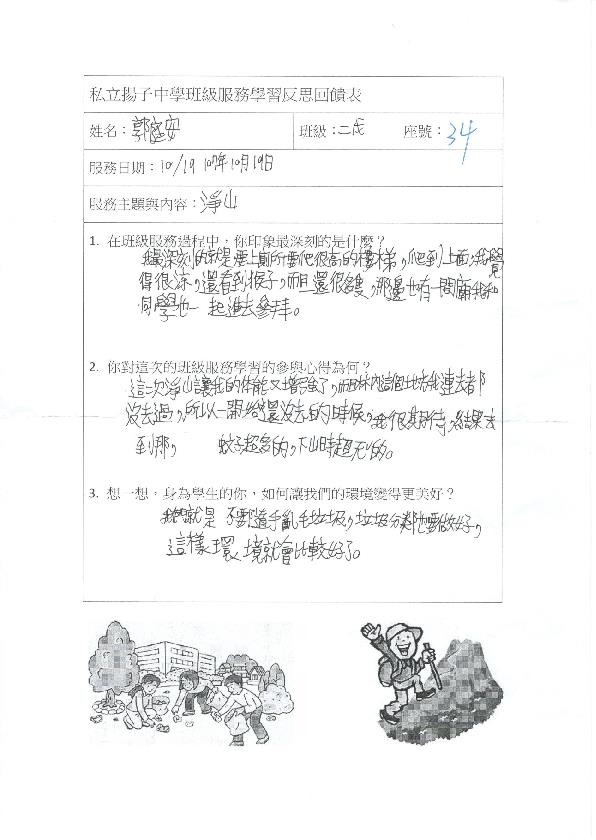 私立揚子中學班級服務學習反思回饋表
姓名：郭庭安 班級：二戊 座號：34
服務日期：10/19 107年10月19日
服務主題與內容：淨山
1. 在班級服務過程中，你印象最深刻的是什麼？
最深刻的就是要上廁所要爬很高的樓梯，爬到上面，我覺
得很涼，還看到猴子，而且還很多隻，那邊也有一間廟我和
同學也一起進去參拜。
2. 你對這次的班級服務學習的參與心得為何？
這次淨山讓我的体能又增強了，而林內這個地方我連去都
沒去過，所以一開始還沒去的時候，我很期待，結果去
到那，蚊子超多的，下山時超冗的。
3. 想一想，身為學生的你，如何讓我們的環境變得更美好？
我們就是不要隨手亂丟垃圾，垃圾分類也要做好，
這樣環境就會比較好了。